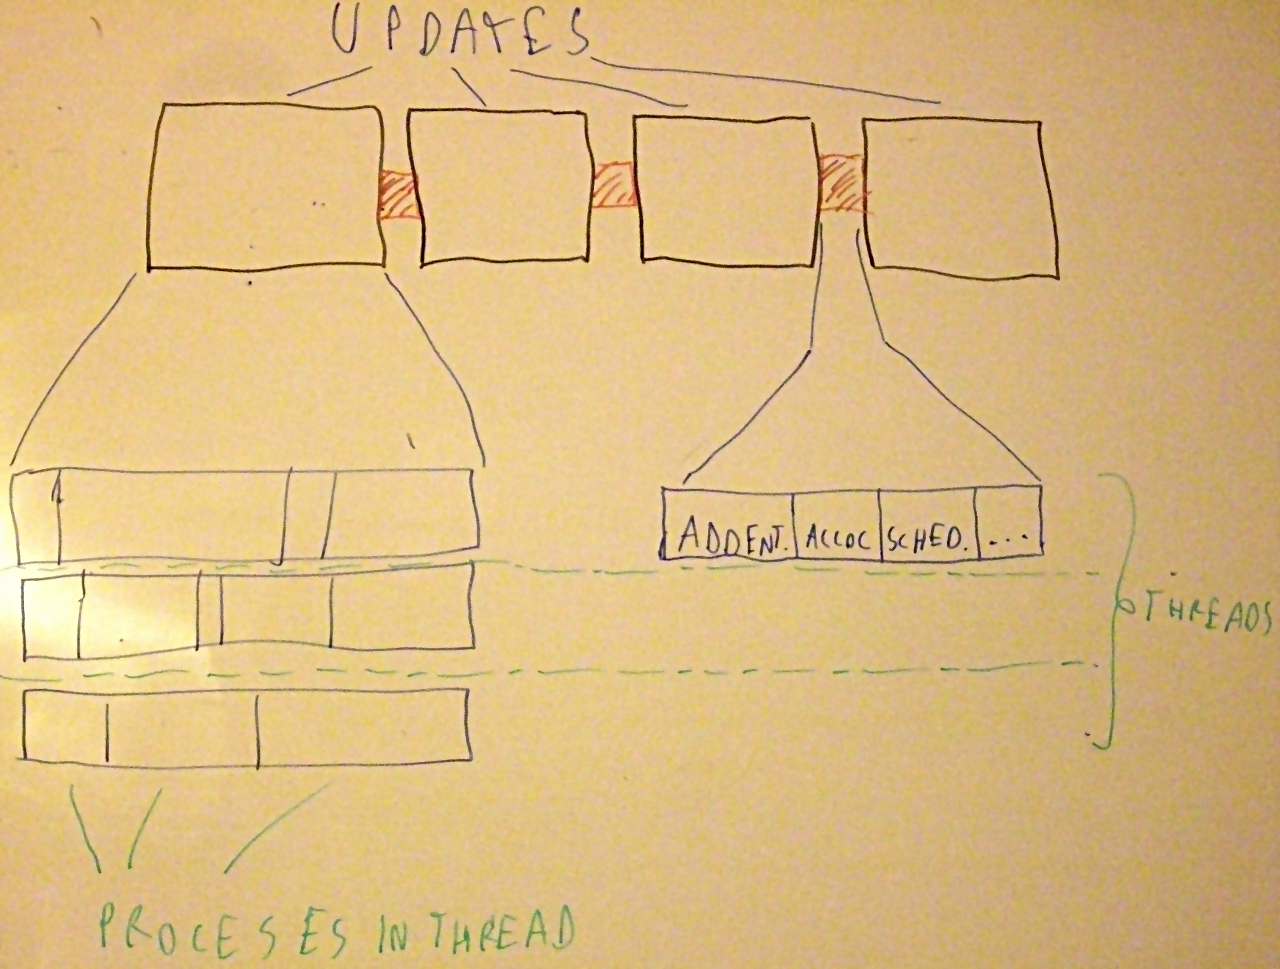 UPDATES
ADDENT. ACCOC SCHED. ...
THREADS
PROCESES IN THREAD